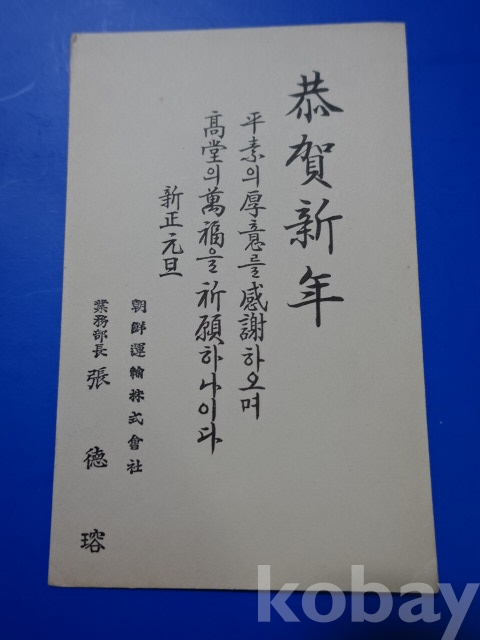 恭賀新年
平素의厚意를感謝하오며
高堂의萬福을祈願하나이다
新正元旦
朝鮮運輸株式會社
業務部長 張德瑢
kobay